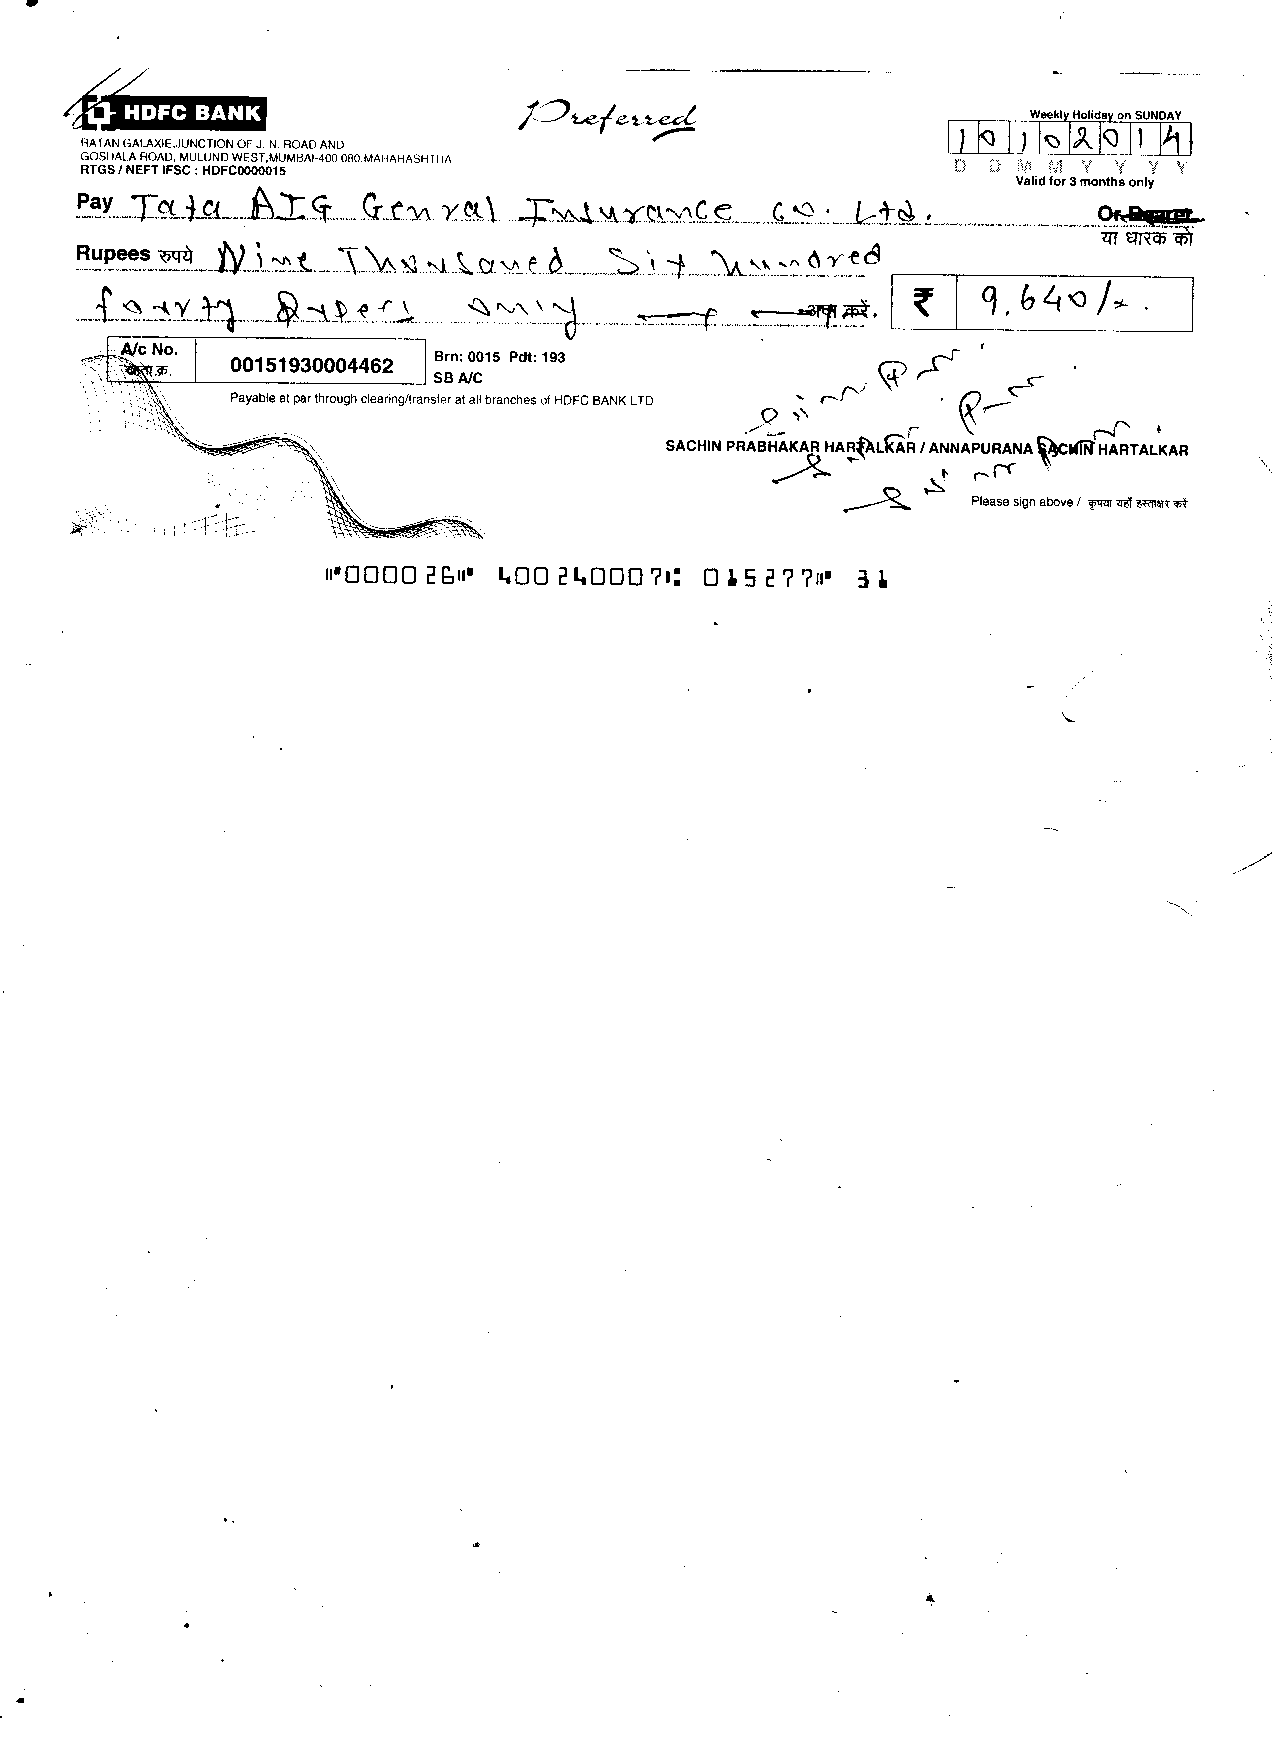 HDFC BANK
Preferred
Weekly Holiday on SUNDAY
RATAN GALAXIE, JUNCTION OF J. N. ROAD AND
GOSHALA ROAD, MULUND WEST,MUMBAI-400 080.MAHARASHTRA
RTGS / NEFT IFSC : HDFC0000015
10102014
D D M M Y Y Y Y
Valid for 3 months only
Pay Tata AIG Genral Insurance Co. Ltd. Or Bearer
या धारक को
Rupees रुपये Nine Thousaned Six hundred
fourty Rupees only अदा करें. ₹ 9,640/-.
A/c No. 00151930004462 Brn: 0015 Pdt: 193
खाता क्र. SB A/C
Payable at par through clearing/transfer at all branches of HDFC BANK LTD
SACHIN PRABHAKAR HARTALKAR / ANNAPURANA SACHIN HARTALKAR
Please sign above / कृपया यहाँ हस्ताक्षर करें
⑈000026⑈ 400240007⑆ 015277⑈ 31